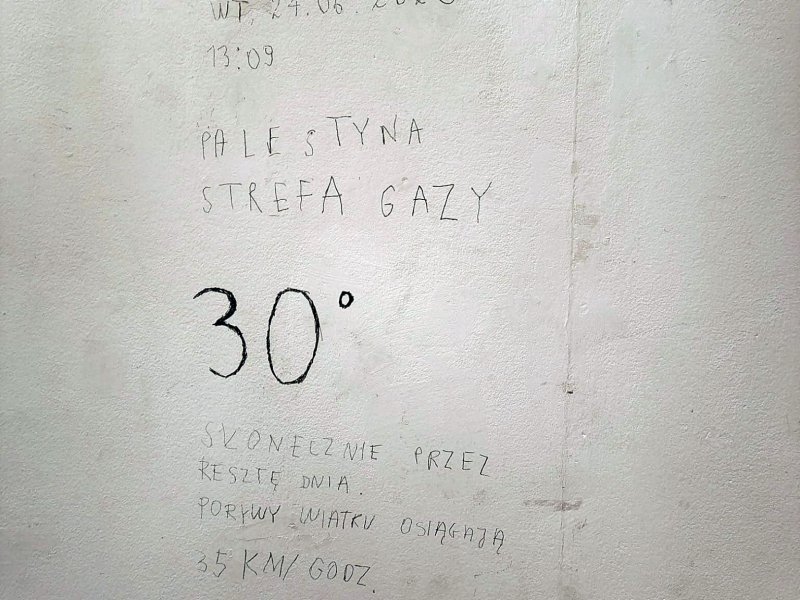 WT, 24.06.2025
13:09
PALESTYNA
STREFA GAZY
30°
SŁONECZNIE PRZEZ
RESZTĘ DNIA.
PORYWY WIATRU OSIĄGAJĄ
35 KM/GODZ.